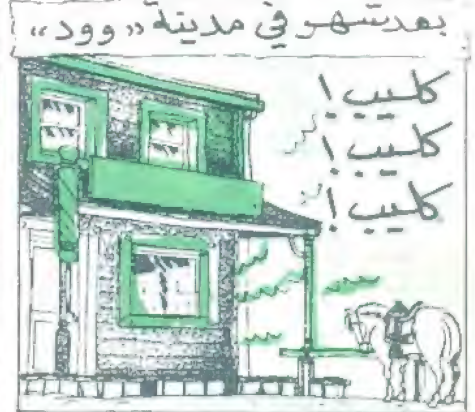 بعد شهر في مدينة «وود»
كليب!
كليب!
كليب!